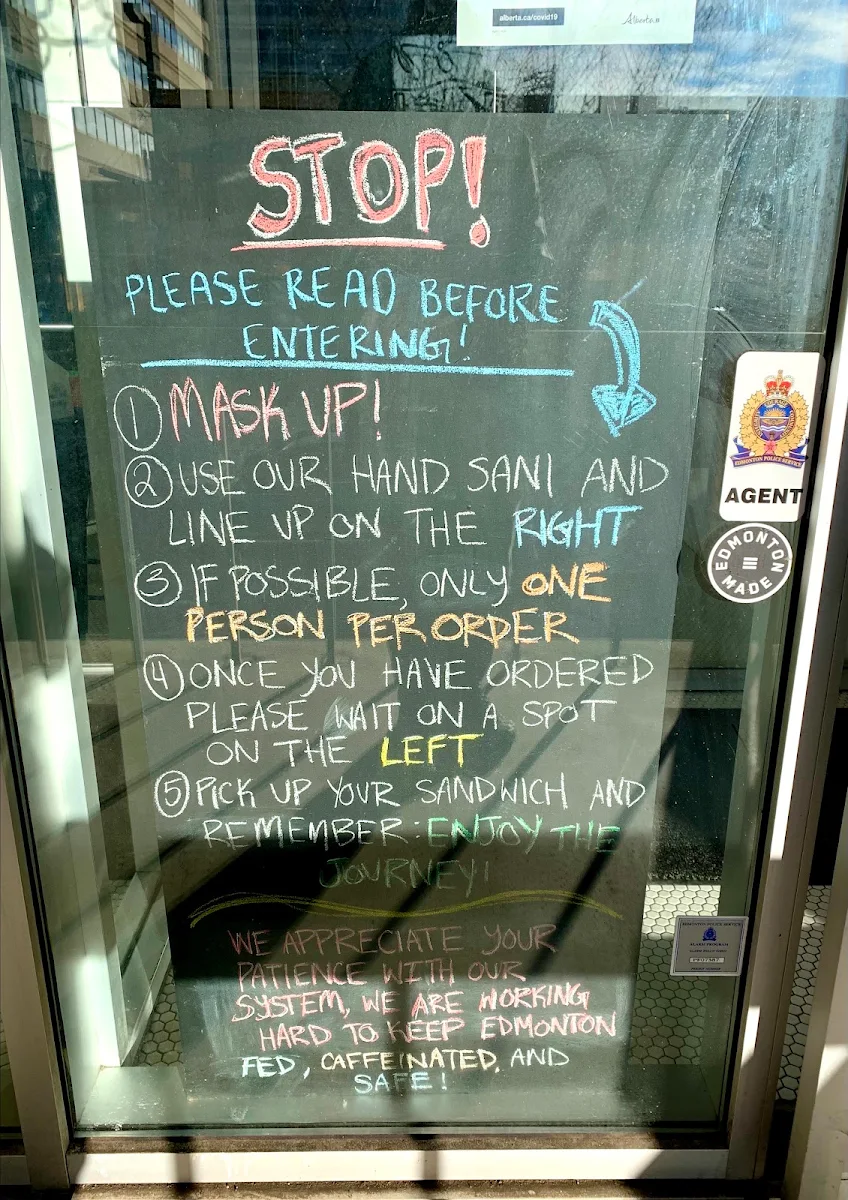 alberta.ca/covid19
Alberta
STOP!
PLEASE READ BEFORE
ENTERING!
1 MASK UP!
2 USE OUR HAND SANI AND
LINE UP ON THE RIGHT
3 IF POSSIBLE, ONLY ONE
PERSON PER ORDER
4 ONCE YOU HAVE ORDERED
PLEASE WAIT ON A SPOT
ON THE LEFT
5 PICK UP YOUR SANDWICH AND
REMEMBER: ENJOY THE
JOURNEY!
WE APPRECIATE YOUR
PATIENCE WITH OUR
SYSTEM, WE ARE WORKING
HARD TO KEEP EDMONTON
FED, CAFFEINATED, AND
SAFE!
EDMONTON POLICE SERVICE
AGENT
EDMONTON
MADE
EDMONTON POLICE SERVICE
ALARM PROGRAM